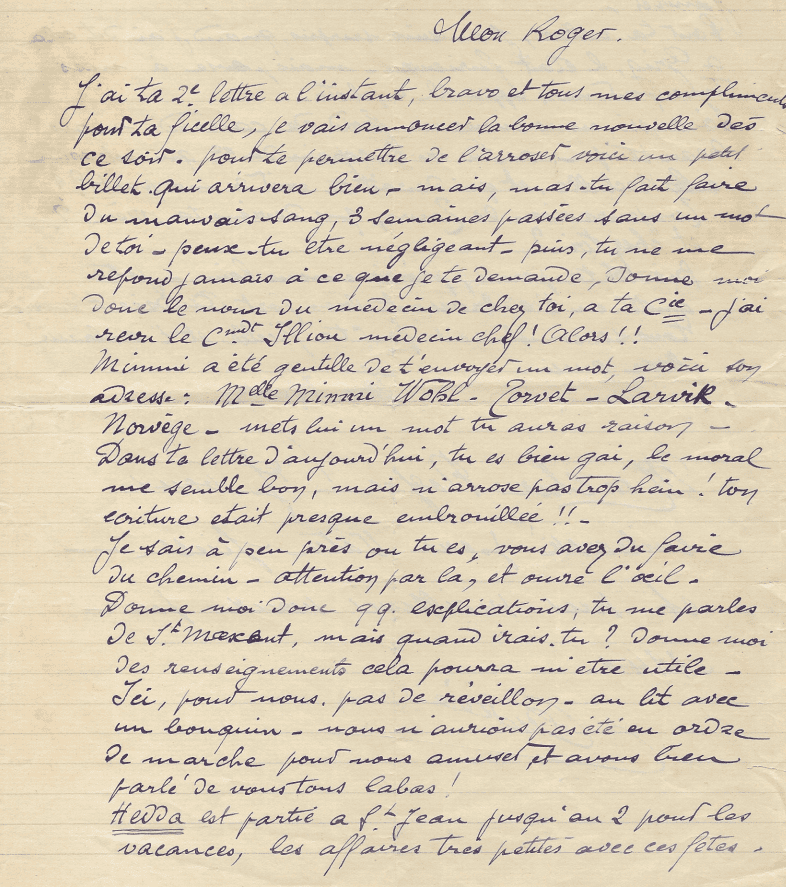 Mon Roger.
J'ai ta 2e lettre a l'instant, bravo et tous mes compliments
pour ta ficelle, je vais annoncer la bonne nouvelle dès
ce soir. pour te permettre de l'arroser voici un petit
billet. qui arrivera bien - mais, mas-tu fait faire
du mauvais sang, 3 semaines passées sans un mot
de toi - peux-tu etre négligeant - puis, tu ne me
repond jamais à ce que je te demande, Donne moi
donc le nom du medecin de chez toi, a ta Cie - j'ai
revu le Cmdt Illiou medecin chef! Alors!!
Mimmi a été gentille de t'envoyer un mot, voici son
adresse: Melle Mimmi Wohl - Torvet - Larvik -
Norvège - mets lui un mot tu auras raison -
Dans ta lettre d'aujourd'hui, tu es bien gai, le moral
me semble bon, mais n'arrose pas trop hein! ton
ecriture etait presque embrouilleé!! -
Je sais à peu près ou tu es, vous avez du faire
du chemin - attention par la, et ouvre l'œil.
Donne moi donc qq. explications, tu me parles
de St Maxent, mais quand irais-tu? donne moi
des renseignements cela pourra m'etre utile -
Ici, pour nous. pas de réveillon - au lit avec
un bouquin - nous n'aurions pas été en ordre
de marche pour nous amuser, et avons bien
parlé de vous tous labas!
Hedda est partie a St Jean jusqu'au 2 pour les
vacances, les affaires très petites avec ces fetes.